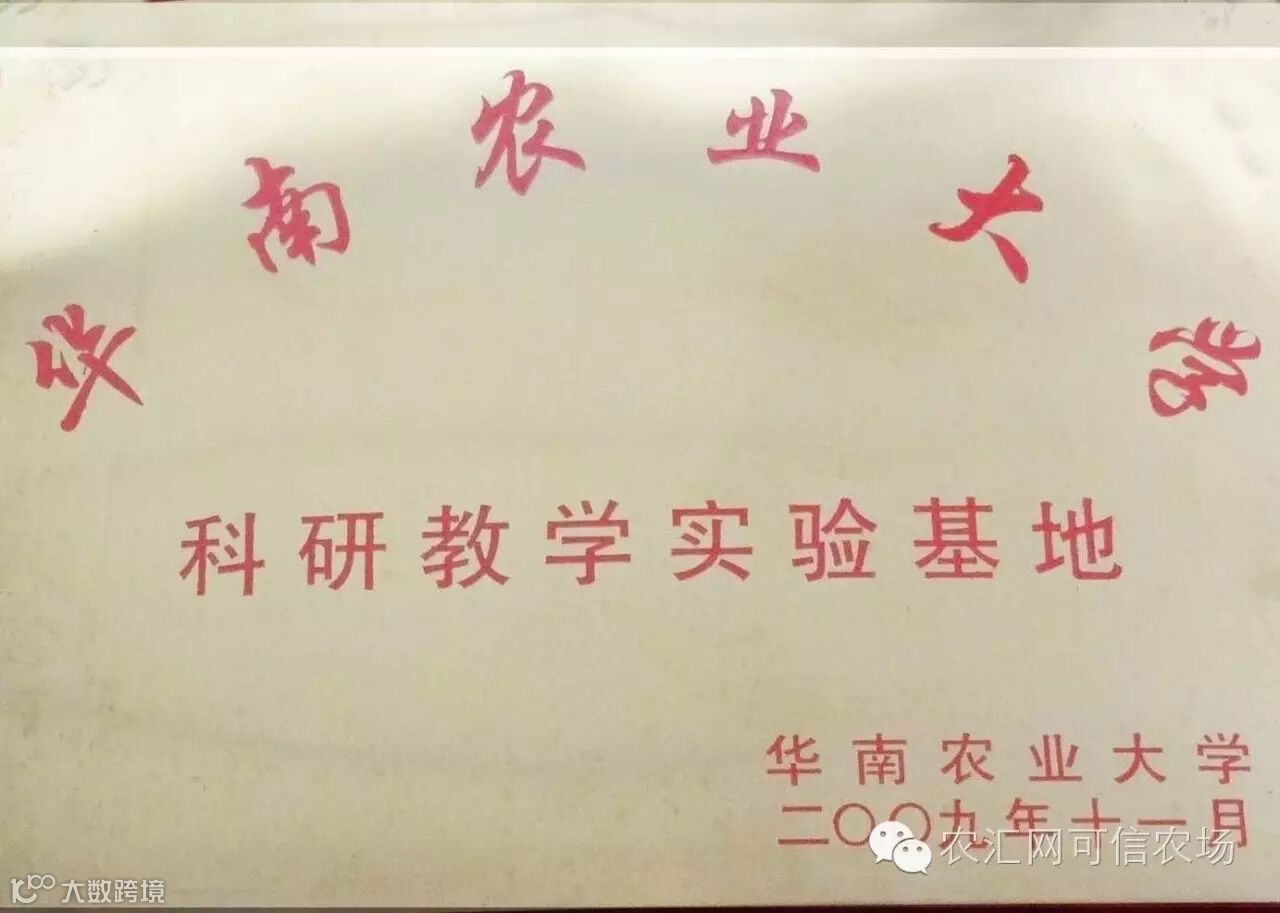 华南农业大学
科研教学实验基地
华南农业大学
二〇〇九年十一月
农汇网可信农场
大数跨境